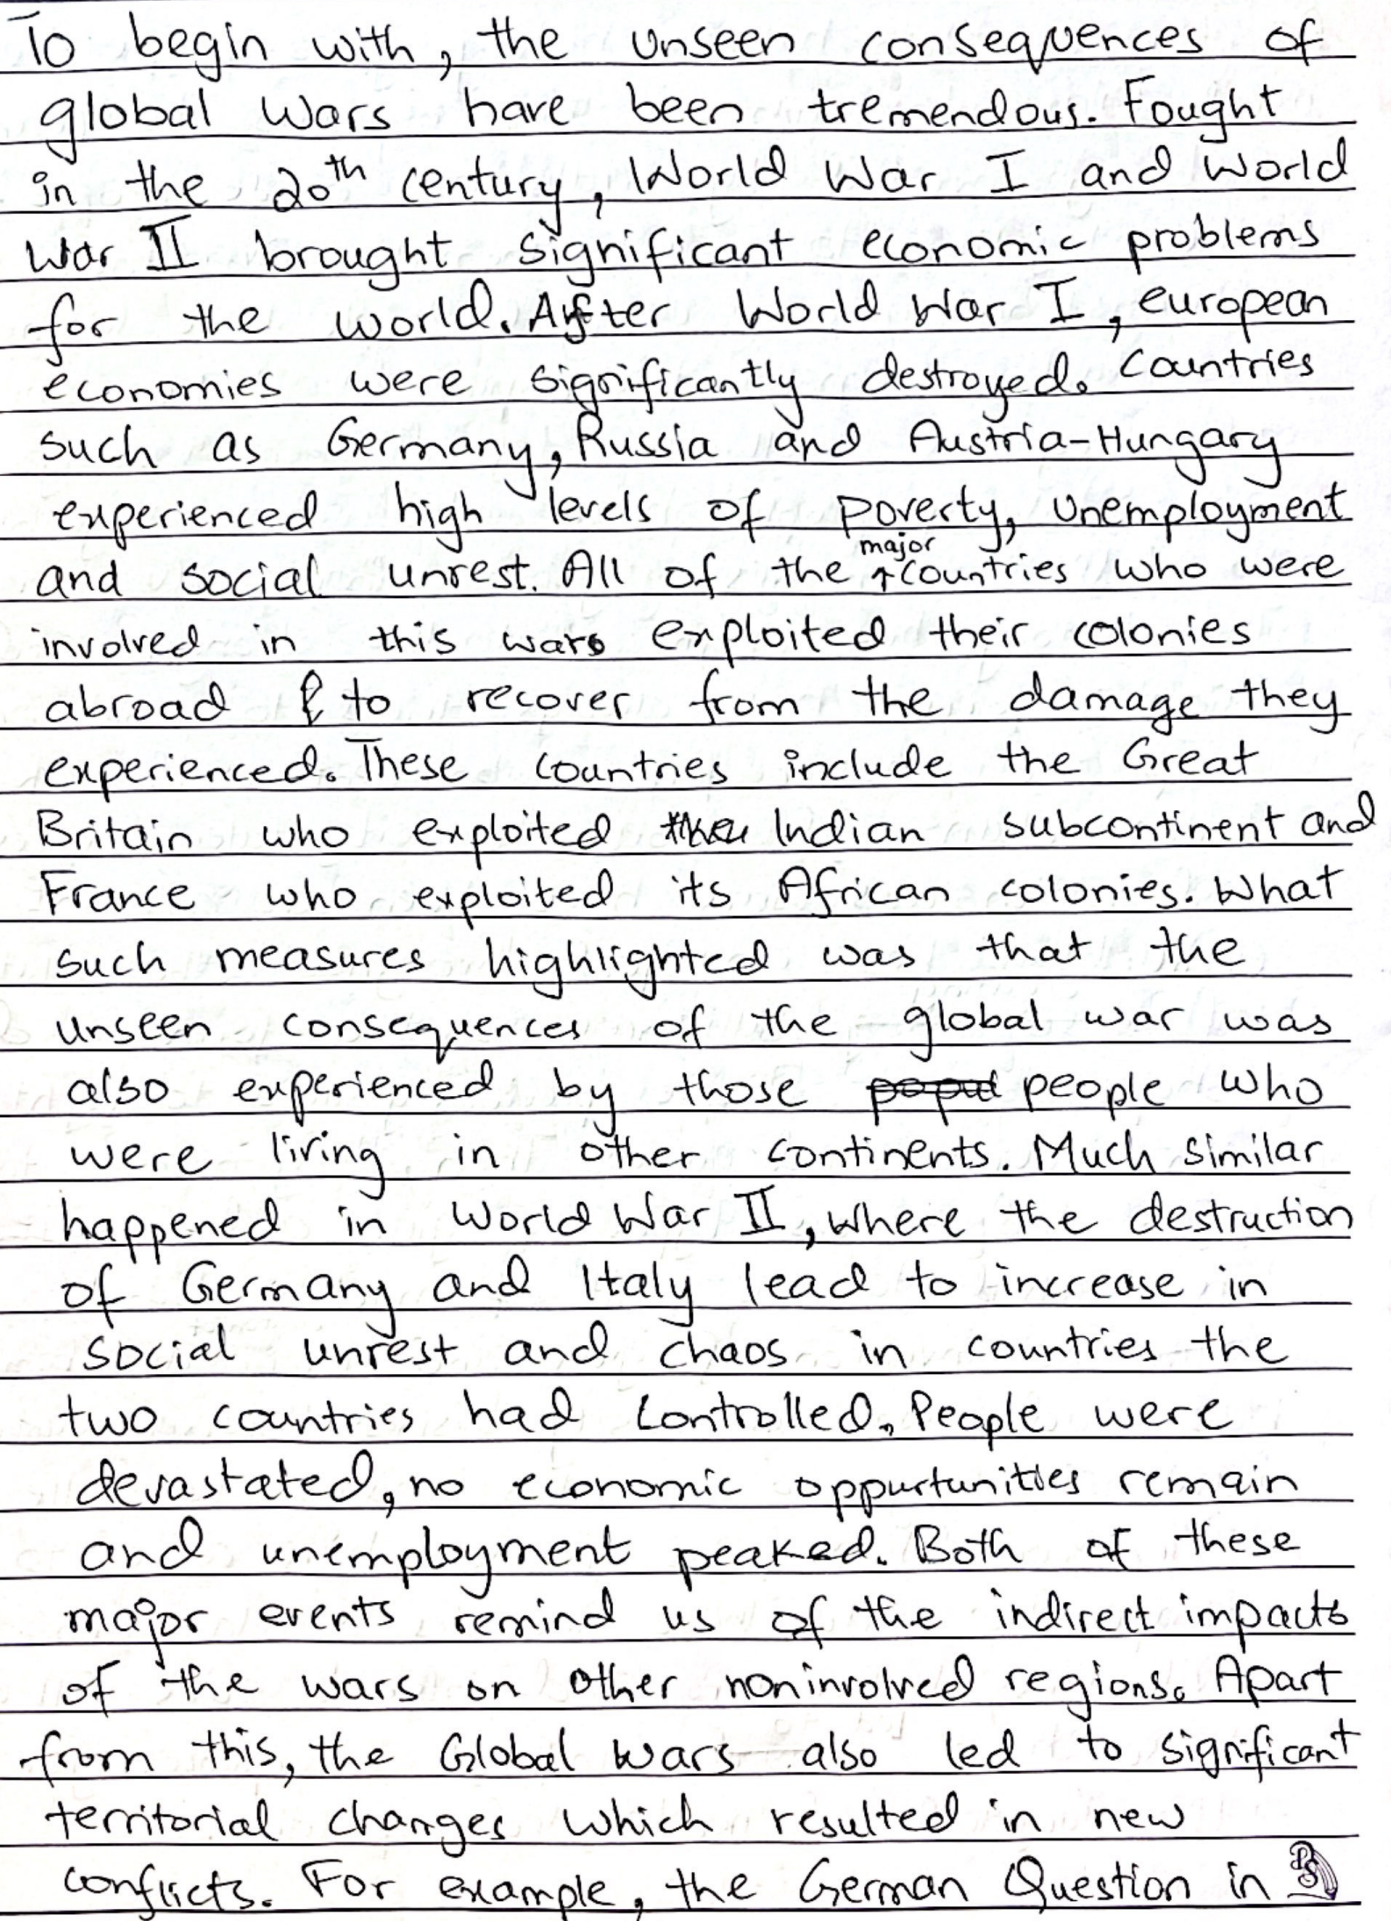 To begin with, the unseen consequences of
global wars have been tremendous. Fought
in the 20th century, World War I and World
War II brought significant economic problems
for the world. After World War I, european
economies were significantly destroyed. Countries
such as Germany, Russia and Austria-Hungary
experienced high levels of poverty, unemployment
and social unrest. All of the major countries who were
involved in this wars exploited their colonies
abroad to recover from the damage they
experienced. These countries include the Great
Britain who exploited Indian subcontinent and
France who exploited its African colonies. What
such measures highlighted was that the
unseen consequences of the global war was
also experienced by those people who
were living in other continents. Much similar
happened in World War II, where the destruction
of Germany and Italy lead to increase in
social unrest and chaos in countries the
two countries had controlled. People were
devastated, no economic oppurtunities remain
and unemployment peaked. Both of these
major events remind us of the indirect impacts
of the wars on other noninvolved regions. Apart
from this, the Global wars also led to significant
territorial changes which resulted in new
conflicts. For example, the German Question in